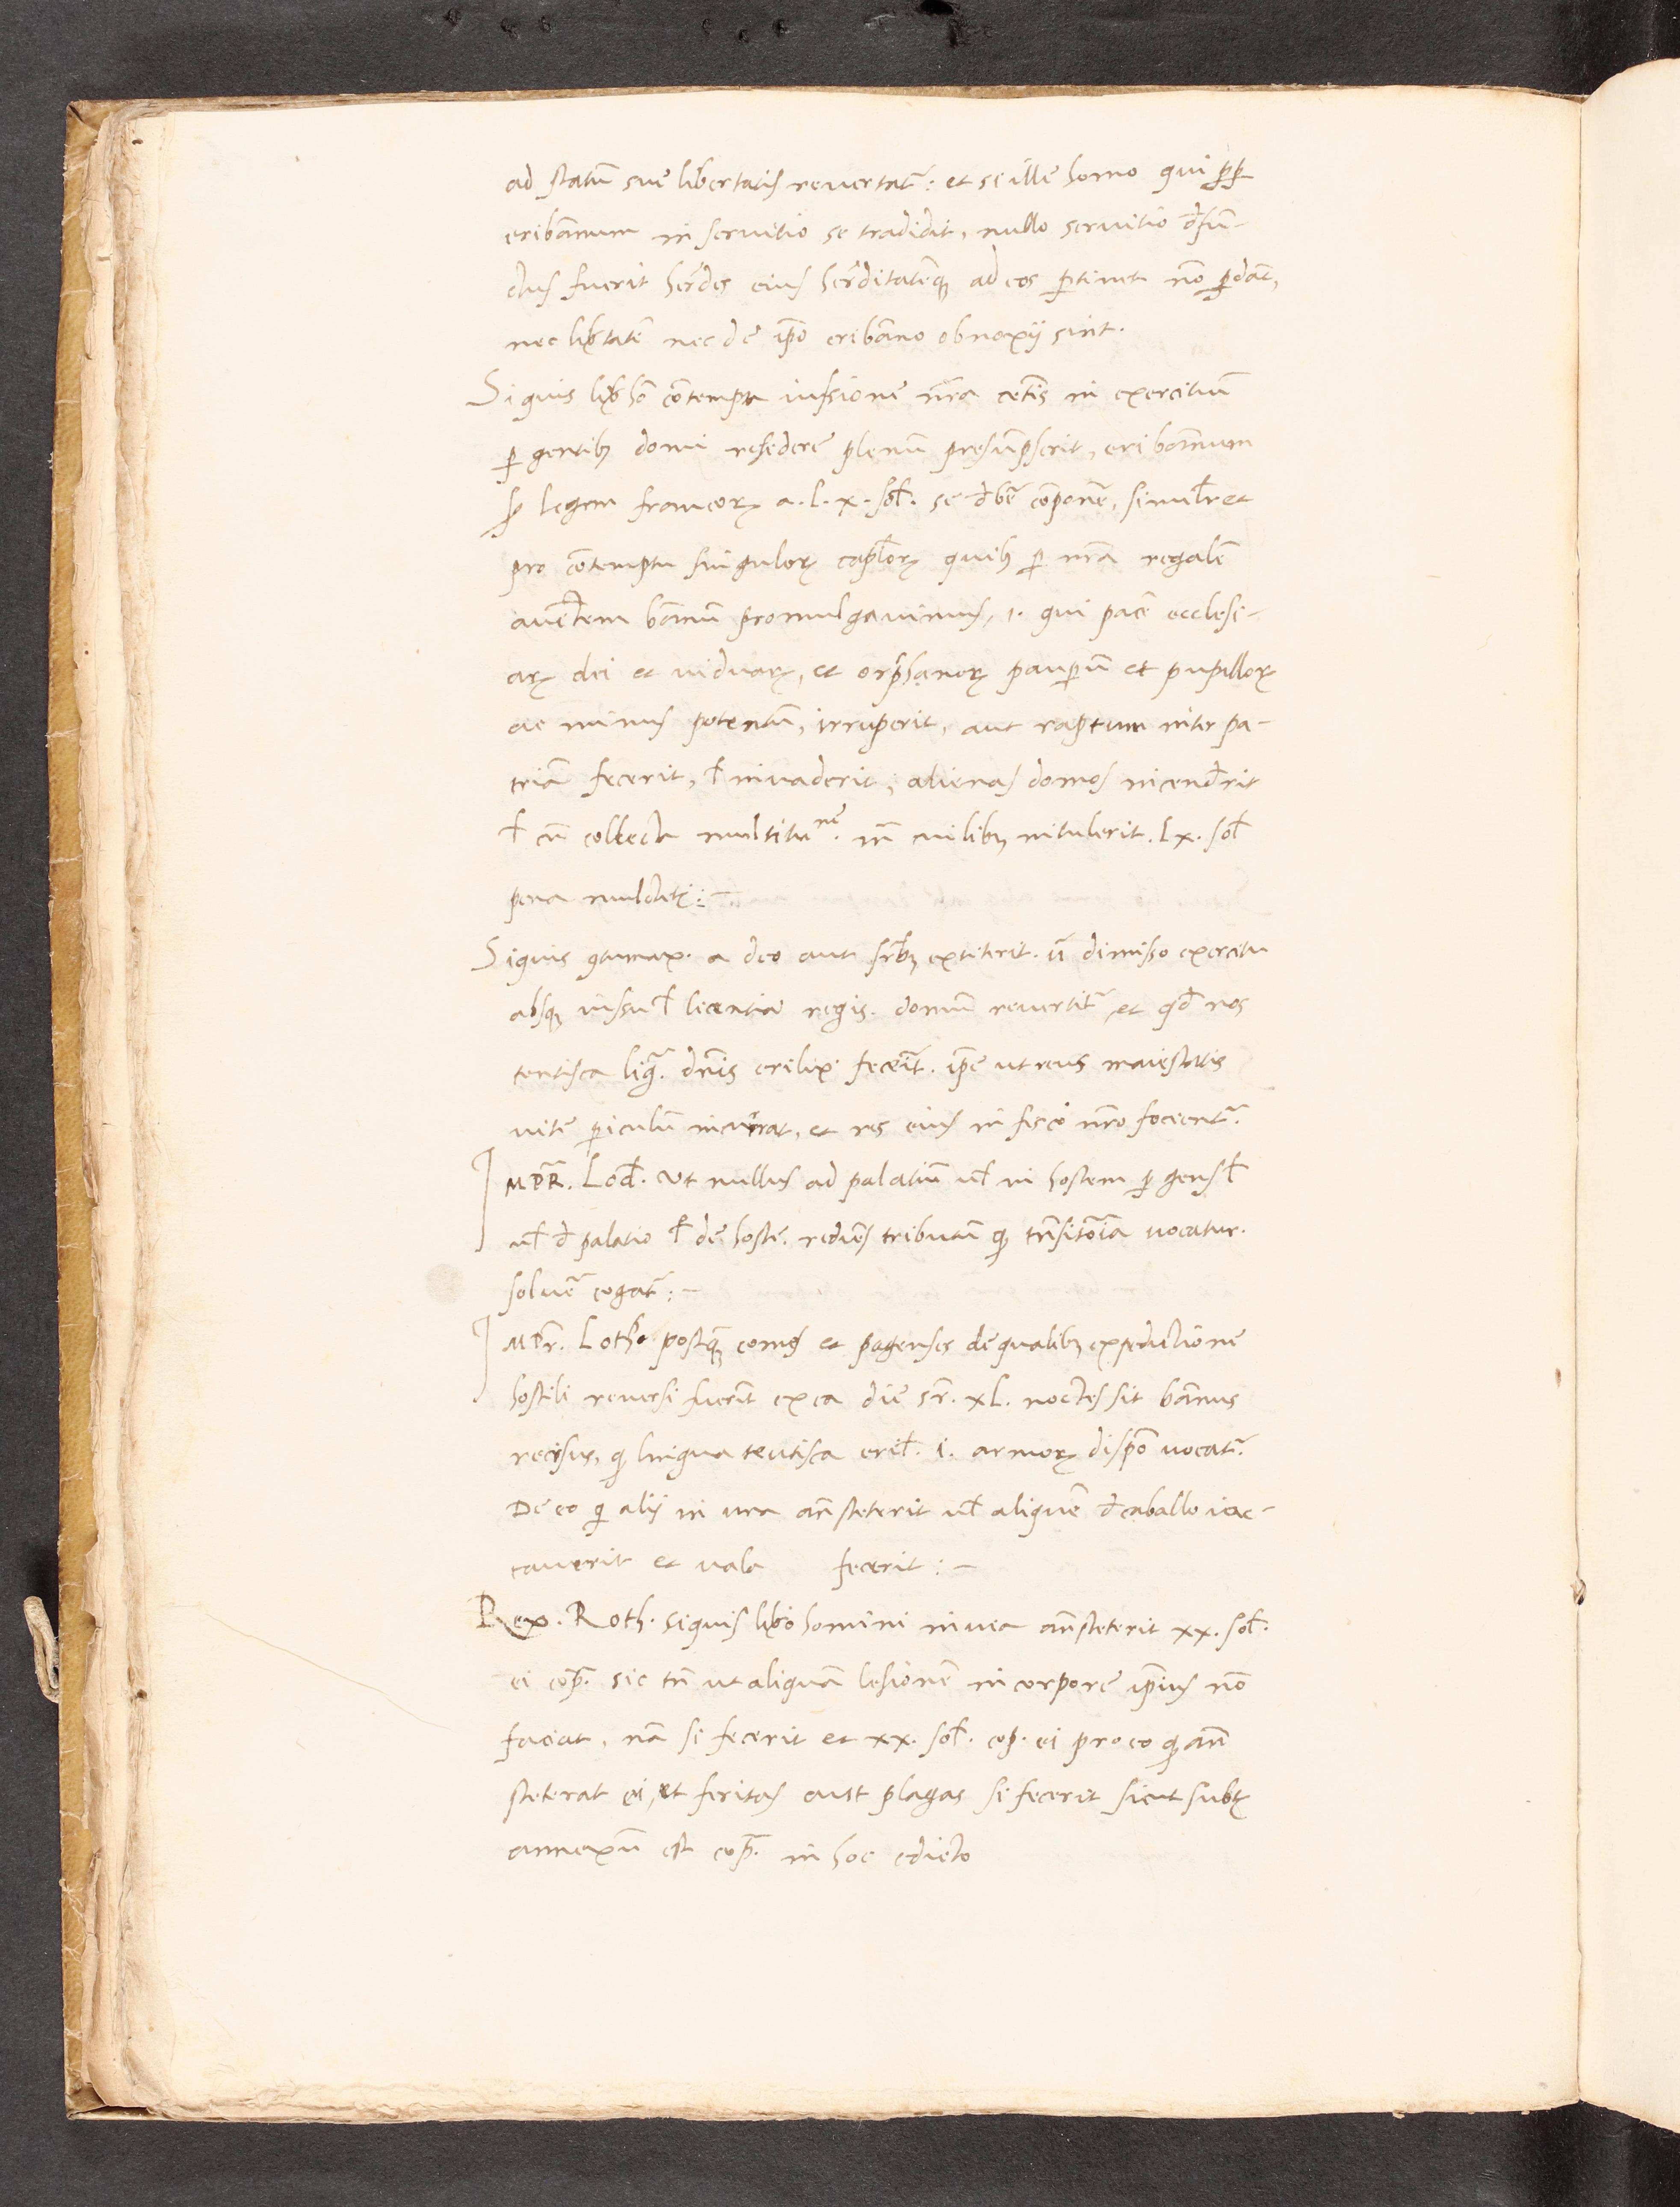 ad statū suę libertatis reuertat̃: et se ille homo qui ꝓpt̃
eribānum in seruitio se tradidit, nullo seruitio đfū-
ctus fuerit her̄des eius her̄ditatēq; ad eos ꝑtinet nō ꝑdāt,
nec lib̄tatē nec de ip̄o eribāno obnoxij sint.
Si quis lib̄ hō cōtempta iussione nr̄a cet̄is in exercitū
ꝑgentib; domi residere plenū presūpserit, eribannum
s̄ legem francorꝝ a. l. x. sol̄. se đb̄e cōponē, simul̄r et
pro cōtemptu singulorꝝ capl̄orꝝ quib; ꝑ nr̄a regalē
auctem bānū promulgauimus, 1. qui pacē ecclesi-
arꝝ dei et uiduarꝝ, et orphanorꝝ pauꝑū et pupillorꝝ
ac minus potentū, irruperit, aut raptum inter pa-
triā fecerit, ł inuaderit, alienas domos incenđrit
ł cū collecta multitunē. in̄ cuilib; intulerit. lx. sol̄
pena mulctet̃:
Siquis ꝯtumax. a deo aut sr̄b; extiterit. ū dimisso exercitu
absq; iussu ł licentia regis. domū reuertit̃ et qđ nos
teutisca liḡ. dn̄is erilix fecerīt. ip̄e ut reus maiestatis
uitę ꝑiculū incurrat, et res eius in fisco nr̄o socient̃.
IMP̄R. Lođ. Ut nullus ad palatiū ul̄ in hostem ꝑgens ł
ul̄ đ palatio ł de hoste. rediēs tributū ꝙ trn̄sitōia uocatur.
soluē cogat̃:
IMP̄r. Loth̄. postq̄ comes et pagenses de qualib; expeditione
hostili reuersi fuerīt ex ea die sr̄. xl. noctes sit bānus
recisus, ꝙ lingua teutisca eril̄. i. armorꝝ disp̄o uocat̃.
De eo ꝙ alij in uia an̄steterit ul̄ aliquē đ caballo iac-
tauerit et uala fecerit:
Rex. Roth. siquis lib̄o homini in uia an̄steterit xx. sol̄.
ei cōp̄. sic tn̄ ut aliquā lesionē in corpore ip̄ius nō
faciat, nā si fecerit et xx. sol̄. cōp. ei pro eo ꝙ an̄
steterat ei, et feritas aut plagas si fecerit sicut subt̃
annexū est cōp̄. in hoc edicto